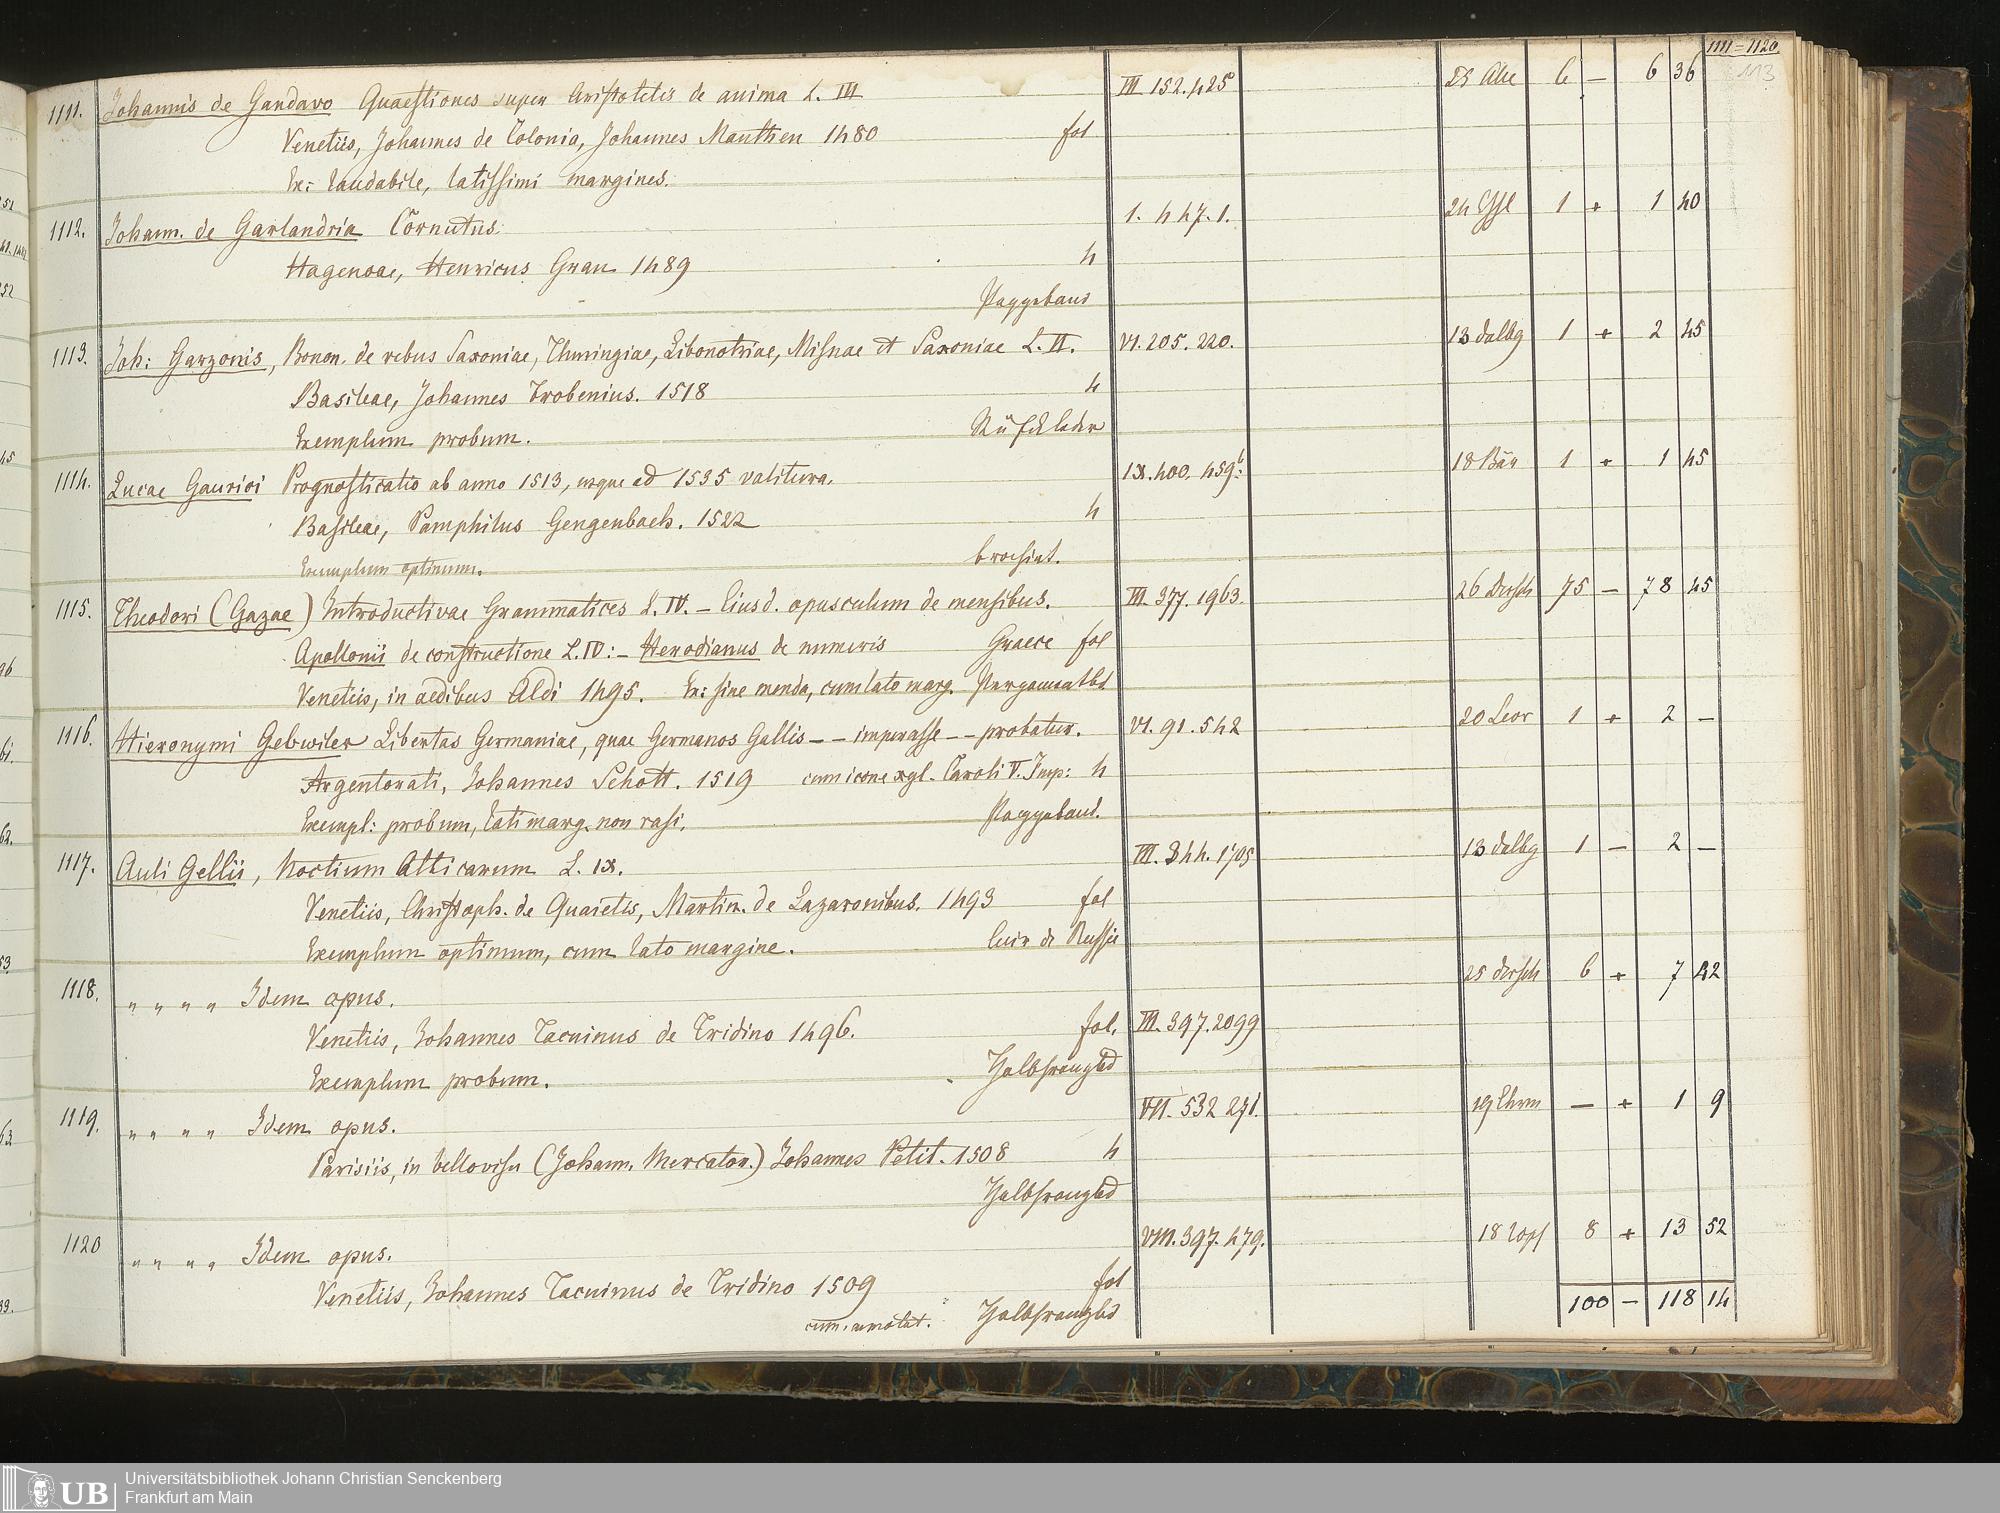 1111 = 1120.
113
1111. Johannis de Gandavo Quaestiones super Aristotelis de anima L. III III 152.425 6 — 6 36
Venetiis, Johannes de Colonia, Johannes Manthen 1480 fol
Ex: laudabile, latissimi margines.
1112. Johann. de Garlandria Cornutus. 1. 447. 1. 24 1 + 1 40
Hagenoae, Henricus Gran 1489 4
Pappeband
1113. Joh: Garzonis, Bonon. de rebus Saxoniae, Thuringiae, Libonotriae, Misnae et Saxoniae L. II. VI. 205. 220. 13 dalbg 1 + 2 45
Basileae, Johannes Frobenius. 1518 4
Exemplum probum.
1114. Lucae Gaurici Prognosticatio ab anno 1513, usque ad 1535 valitura. IX. 400. 459b. 18 Bär 1 + 1 45
Basileae, Pamphilus Gengenbach. 1522 4
Exemplum optimum. brochirt.
1115. Theodori (Gazae) Introductivae Grammatices L. IV. — Eiusd. opusculum de mensibus. III. 377. 1963. 26 75 — 78 45
Apollonii de constructione L. IV: — Herodianus de numeris Graece fol
Venetiis, in aedibus Aldi 1495. Ex: sine menda, cum lato marg. Pergamentbd
1116. Hieronymi Gebwiler Libertas Germaniae, quae Germanos Gallis — — imperasse — — probatur. VI. 91. 542 20 Leor 1 + 2 —
Argentorati, Johannes Schott. 1519 cum icone xyl. Caroli V. Imp: 4
Exempl: probum, lati marg. non rasi. Pappeband.
1117. Auli Gellii, Noctium Atticarum L. IX. III. 344. 1705 13 dalbg 1 — 2 —
Venetiis, Christoph. de Quaietis, Martin. de Lazaronibus. 1493 fol
Exemplum optimum, cum lato margine. Cuir de Russie
1118. " " " " Idem opus. 25 6 + 7 42
Venetiis, Johannes Tacuinus de Tridino 1496. fol. III. 397. 2099
Exemplum probum. Halbfranzbd
1119. " " " " Idem opus. VII. 532 271. 19 Ehrm — + 1 9
Parisiis, in bellovisu (Johann. Mercator.) Johannes Petit. 1508 4
Halbfranzbd
1120 " " " " Idem opus. VIII. 397. 479. 18 8 + 13 52
Venetiis, Johannes Tacuinus de Tridino 1509 fol
cum. annotat. Halbfranzbd
100 — 118 14
UB
Universitätsbibliothek Johann Christian Senckenberg
Frankfurt am Main